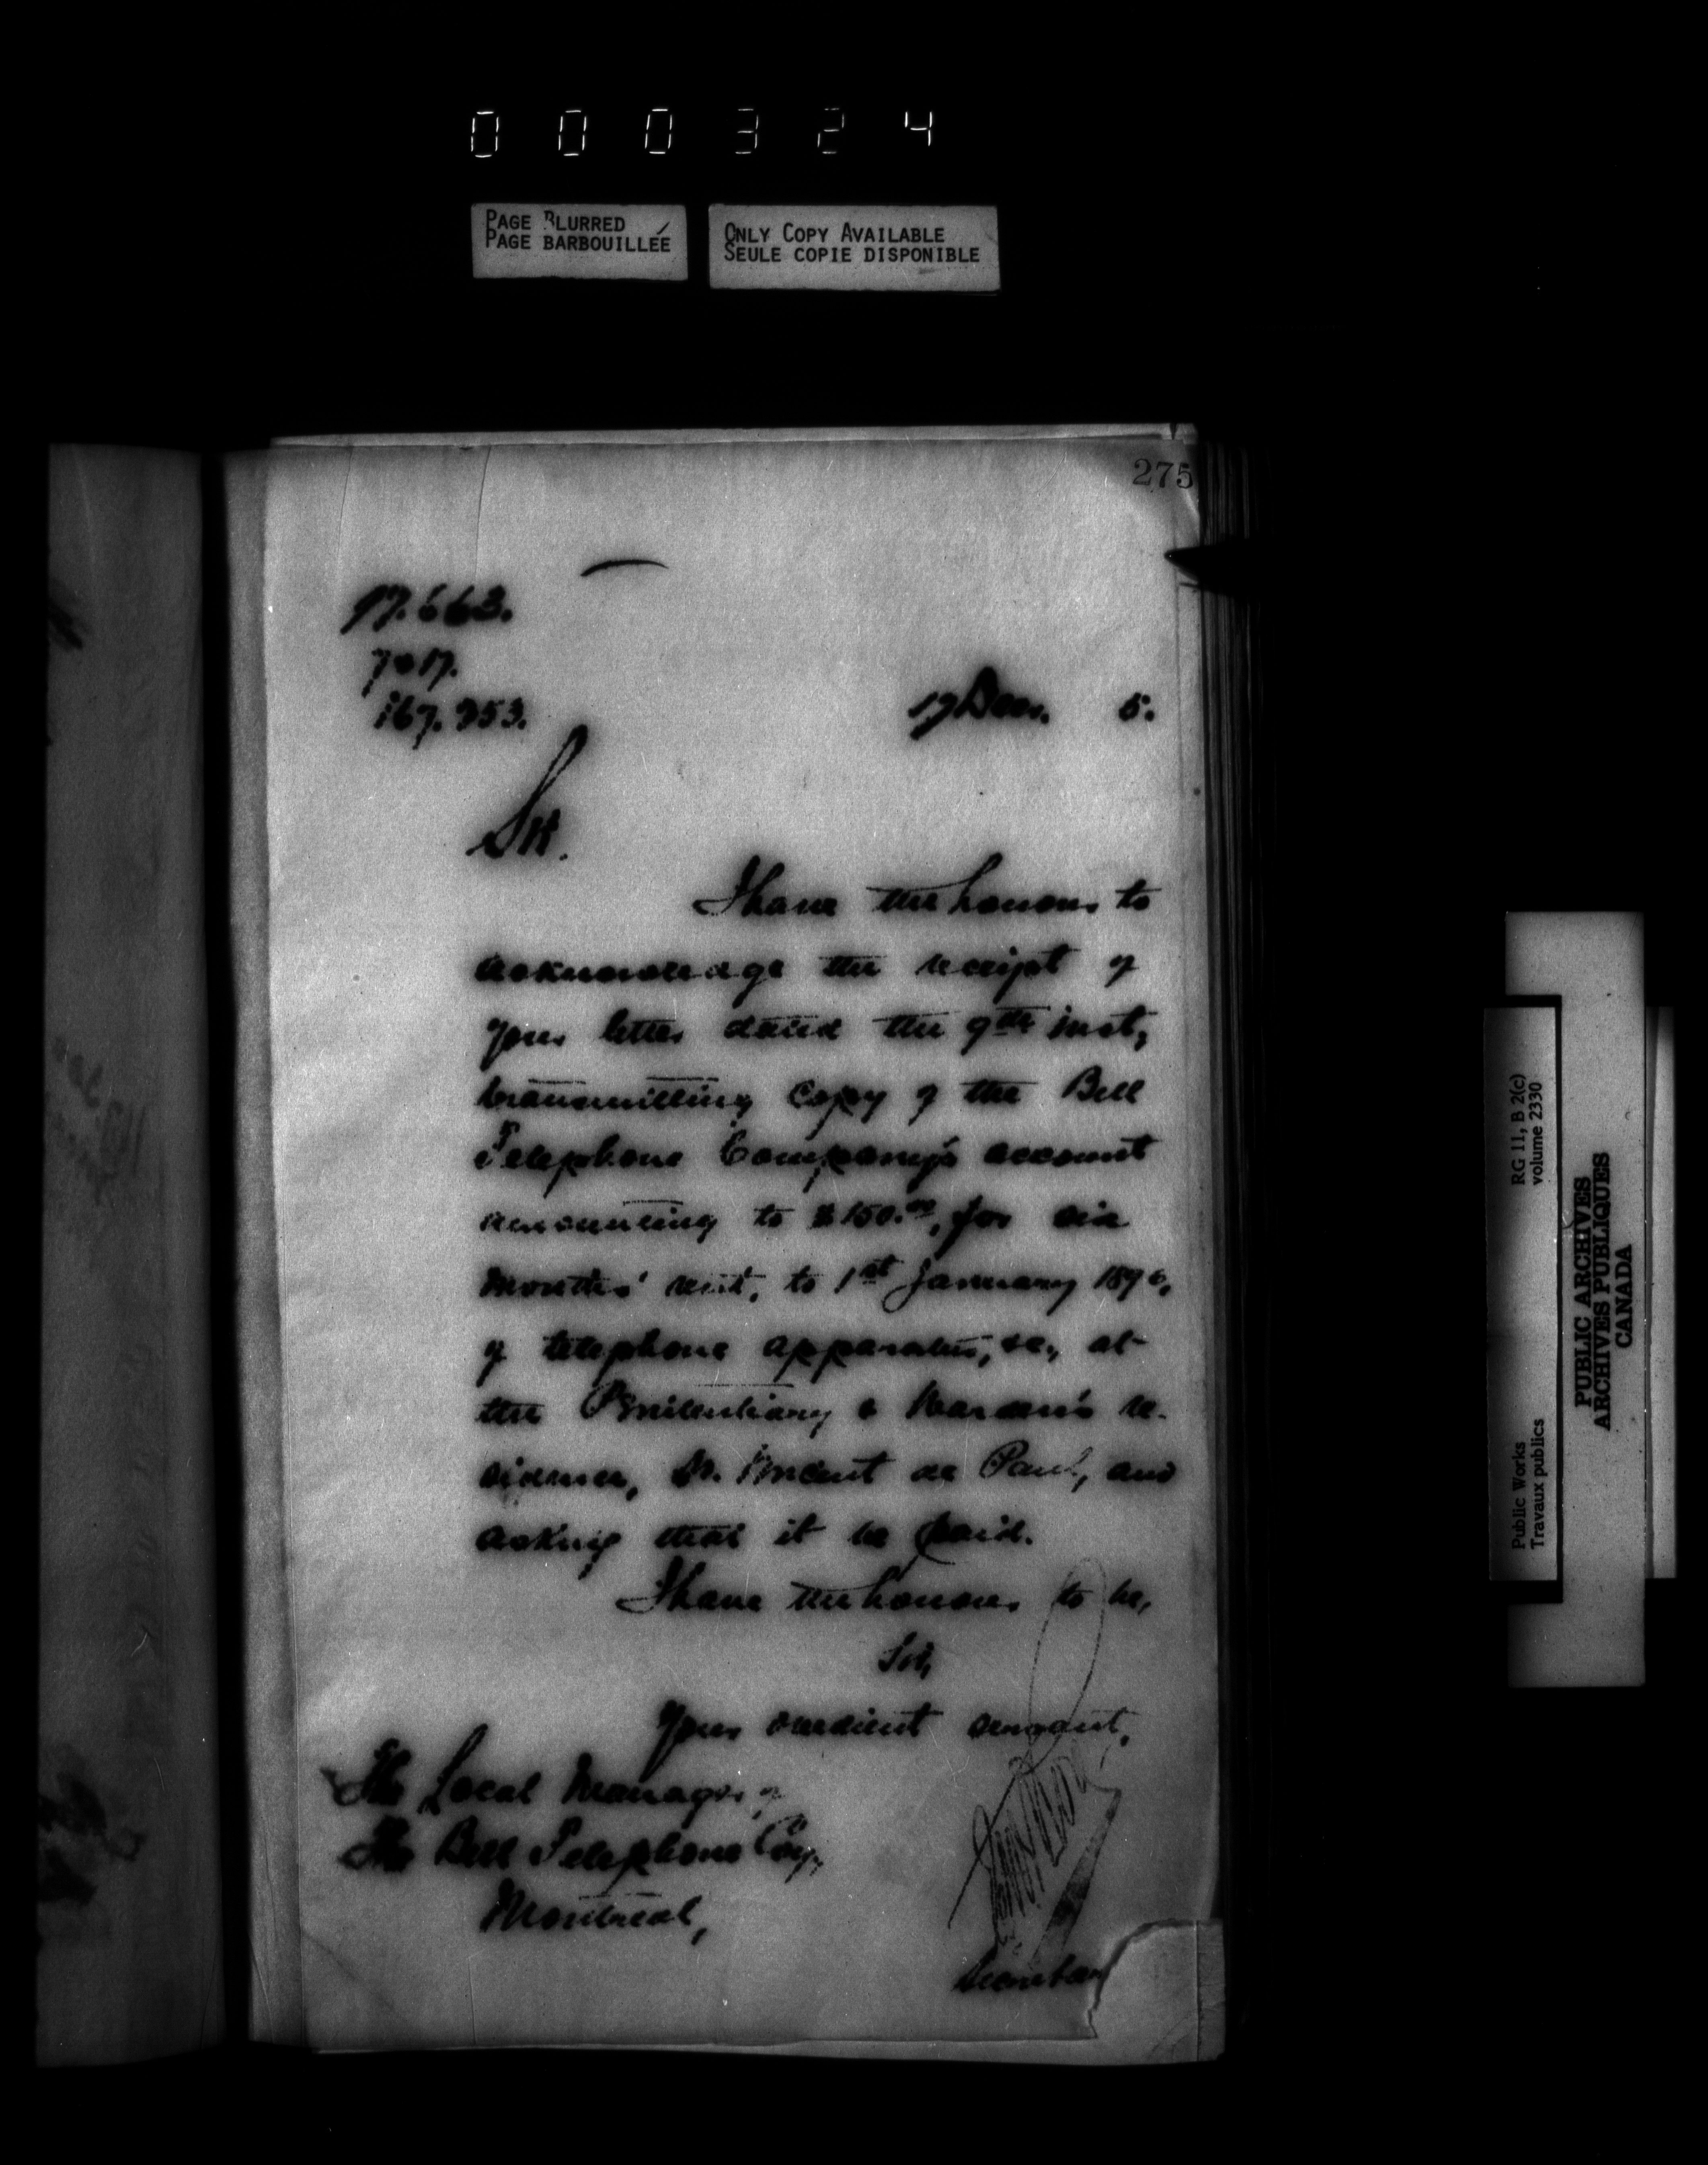 000324
PAGE BLURRED
PAGE BARBOUILLÉE
ONLY COPY AVAILABLE
SEULE COPIE DISPONIBLE
275
167.953.
17 Decr. 5.
Sir.
I have the honour to
acknowledge the receipt of
your letter dated the 9th inst,
transmitting copy of the Bell
Telephone Company's account
amounting to $150.00, for six
months' rent, to 1st January 1896,
of telephone apparatus, &c., at
the Penitentiary & Warden's re-
sidence, St. Vincent de Paul, and
asking that it be paid.
I have the honour to be,
Sir,
Your obedient servant,
The Local Manager of
The Bell Telephone Coy,
Montreal,
Secretary
RG 11, B 2(c)
volume 2330
Public Works
Travaux publics
PUBLIC ARCHIVES
ARCHIVES PUBLIQUES
CANADA